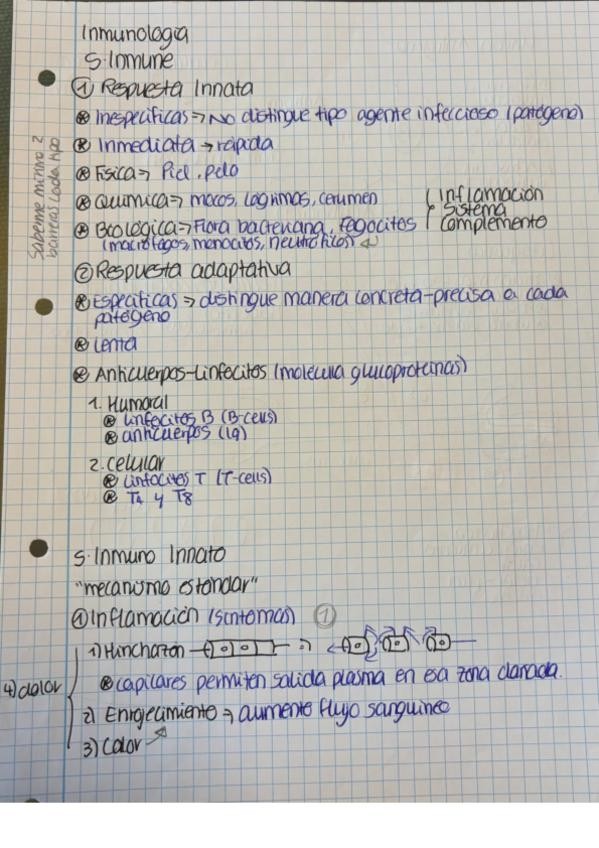 Inmunología
S. Inmune
① Respuesta Innata
⊛ Inespecificas ⇒ No distingue tipo agente infeccioso (patógeno)
⊛ Inmediata → rápida
⊛ Física ⇒ Piel, pelo
⊛ Química ⇒ mocos, lagrimas, cerumen
⊛ Biológica ⇒ Flora bacteriana, Fagocitos
(macrófagos, monocitos, neutrófilos)
Inflamación
Sistema
complemento
Saberme mínimo 2
barreras cada tipo
② Respuesta adaptativa
⊛ Específicas ⇒ distingue manera concreta-precisa a cada
patógeno
⊛ Lenta
⊛ Anticuerpos-Linfocitos (molécula glucoproteinas)
1. Humoral
⊛ Linfocitos B (B-cells)
⊛ anticuerpos (Ig)
2. Celular
⊛ Linfocitos T (T-cells)
⊛ T4 y T8
S. Inmuno Innato
"mecanismo estandar"
① Inflamación (síntomas) ①
1) Hinchazón
⊛ capilares permiten salida plasma en esa zona
2) Enrojecimiento ⇒ aumento flujo sanguineo
3) Calor
4) dolor